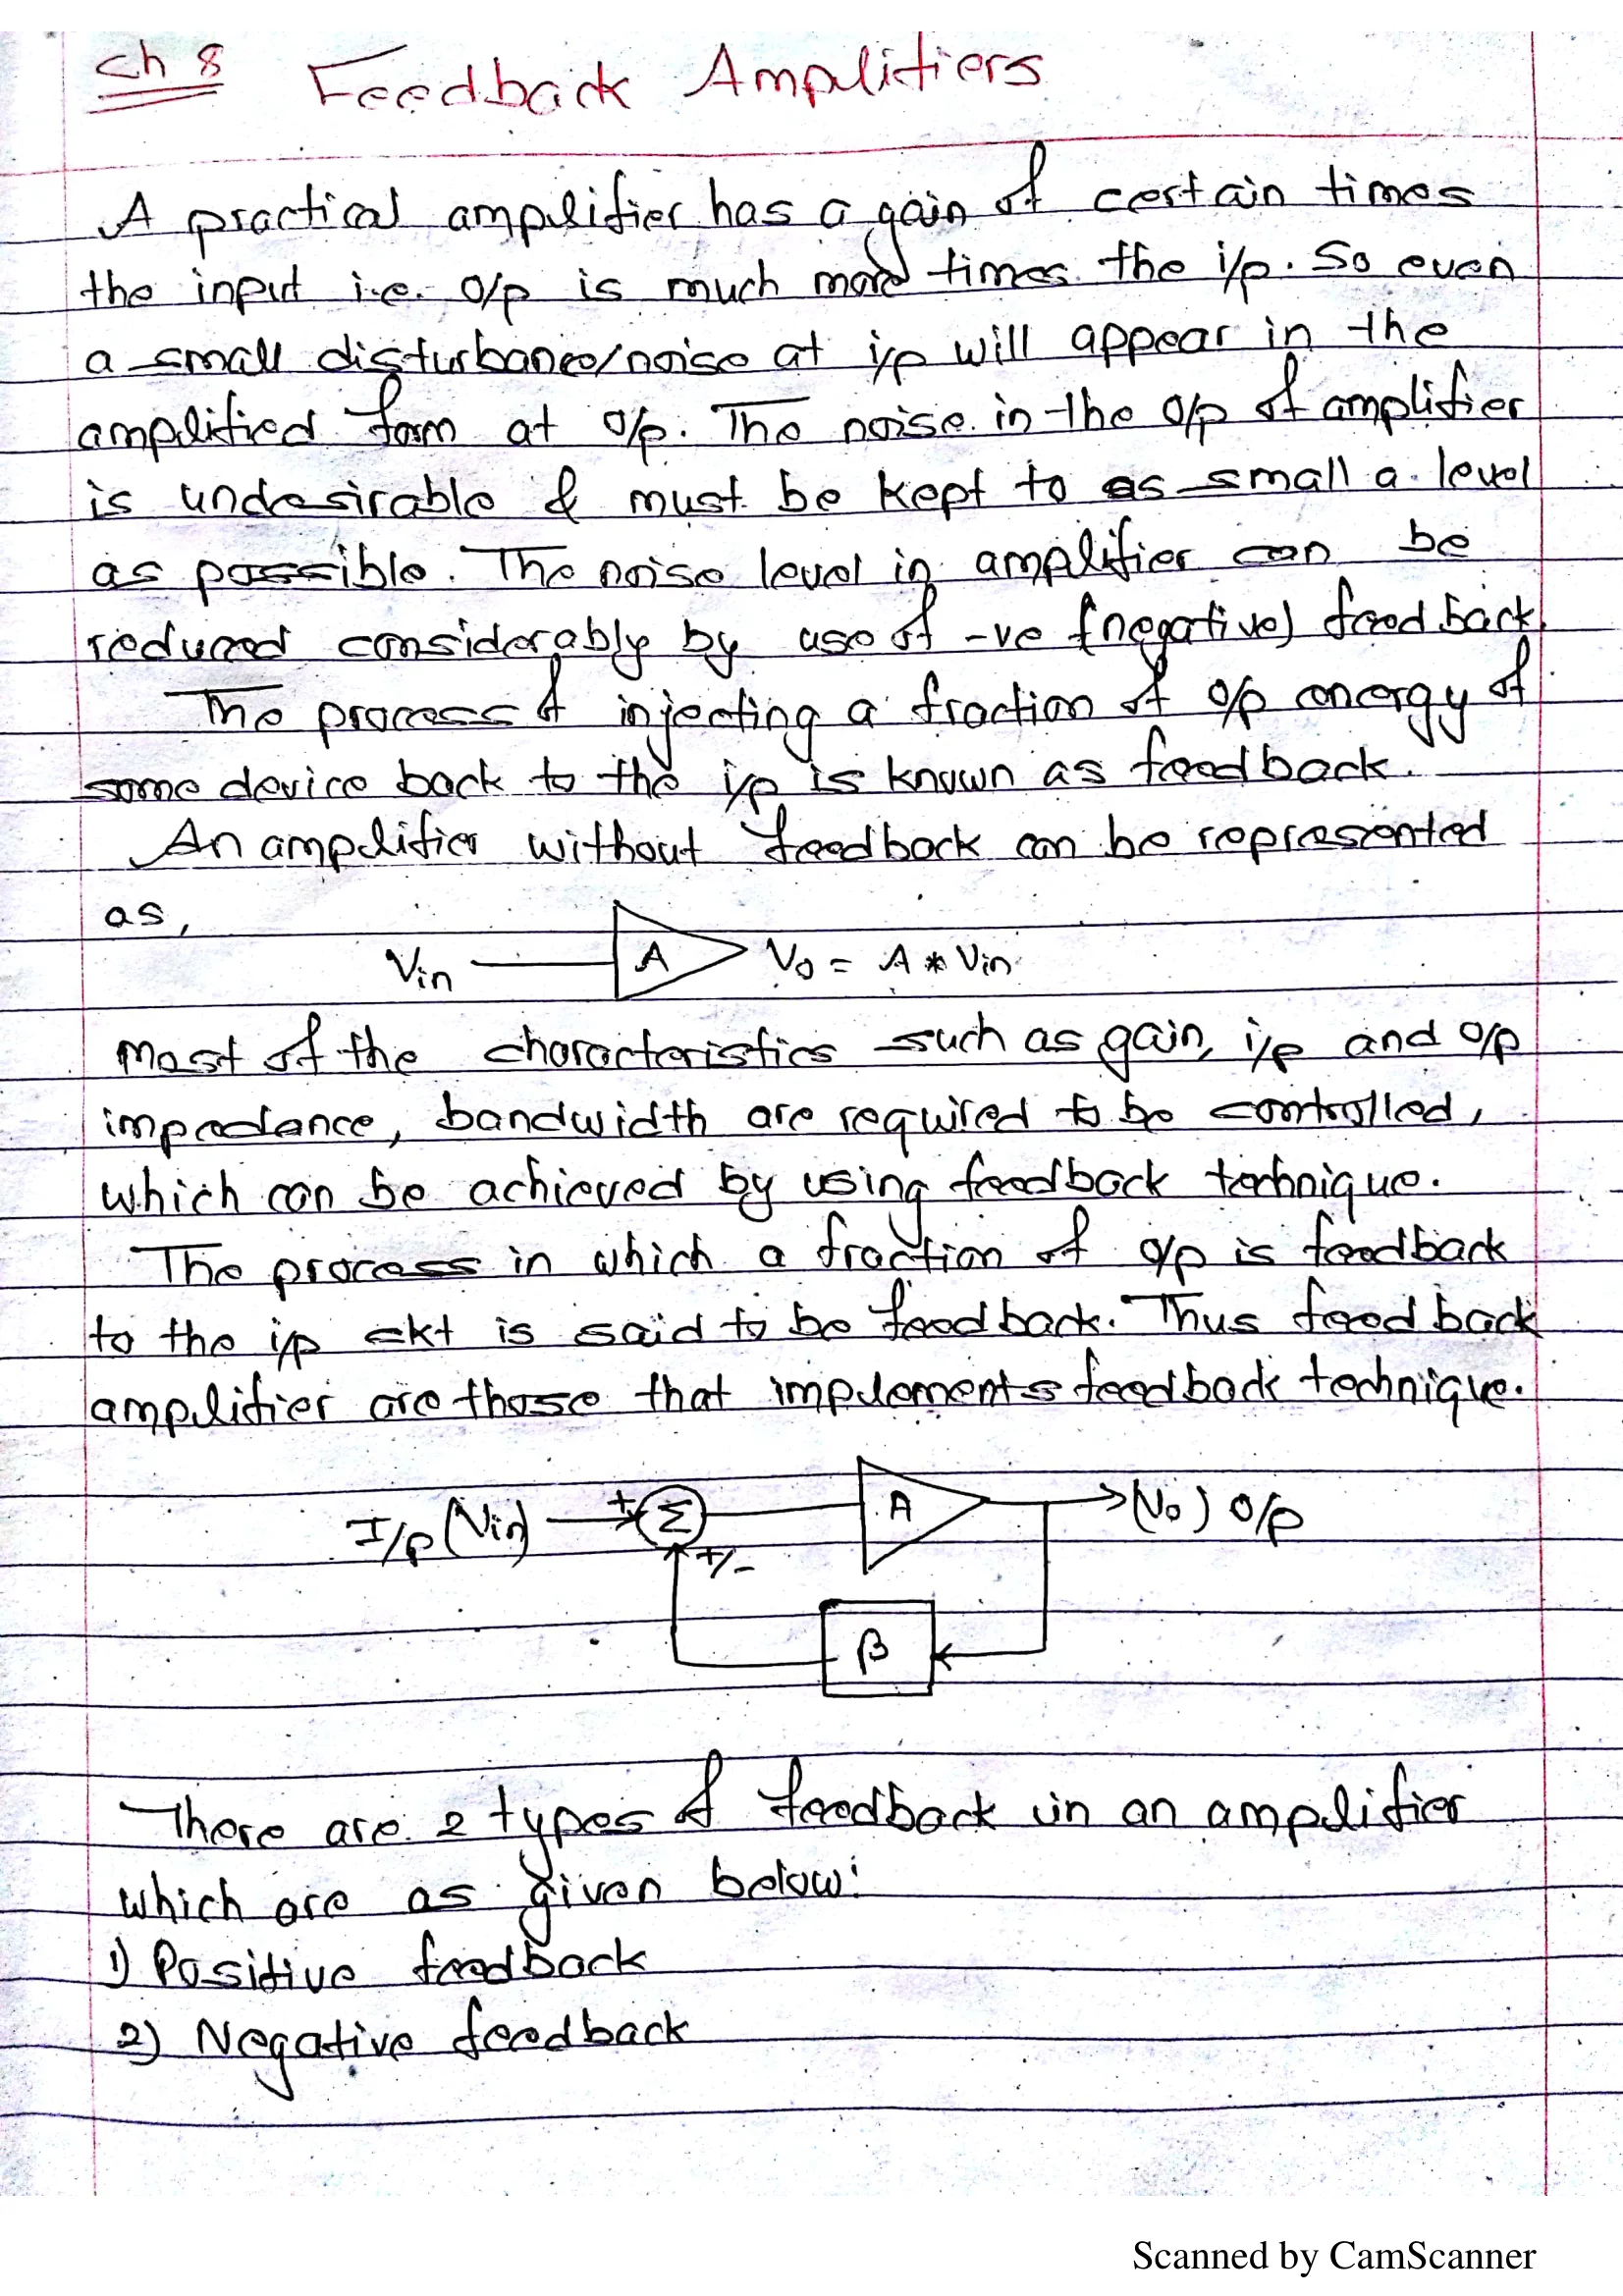 Ch 8 Feedback Amplifiers
A practical amplifier has a gain of certain times
the input i.e. o/p is much more times the i/p. So even
a small disturbance/noise at i/p will appear in the
amplified form at o/p. The noise in the o/p of amplifier
is undesirable & must be kept to as small a level
as possible. The noise level in amplifier can be
reduced considerably by use of -ve (negative) feedback.
The process of injecting a fraction of o/p energy of
some device back to the i/p is known as feedback.
An amplifier without feedback can be represented
as,
Vin A Vo = A * Vin
Most of the characteristics such as gain, i/p and o/p
impedance, bandwidth are required to be controlled,
which can be achieved by using feedback technique.
The process in which a fraction of o/p is feedback
to the i/p ckt is said to be feedback. Thus feedback
amplifier are those that implements feedback technique.
I/p (Vin) + Σ +/- A (Vo) O/p
β
There are 2 types of feedback in an amplifier
which are as given below:
1) Positive feedback
2) Negative feedback
Scanned by CamScanner